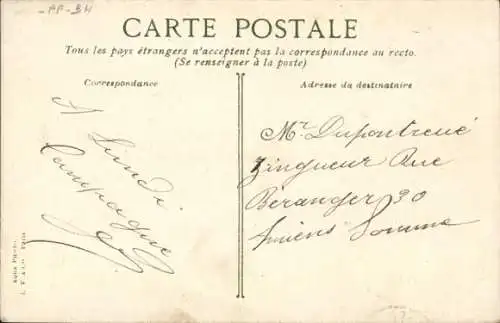 PP-34
CARTE POSTALE
Tous les pays étrangers n'acceptent pas la correspondance au recto.
(Se renseigner à la poste)
Correspondance
Adresse du destinataire
A Lundi
Campagne
Mr. Dupontreué
Zingueur Rue
Béranger 30
Amiens Somme